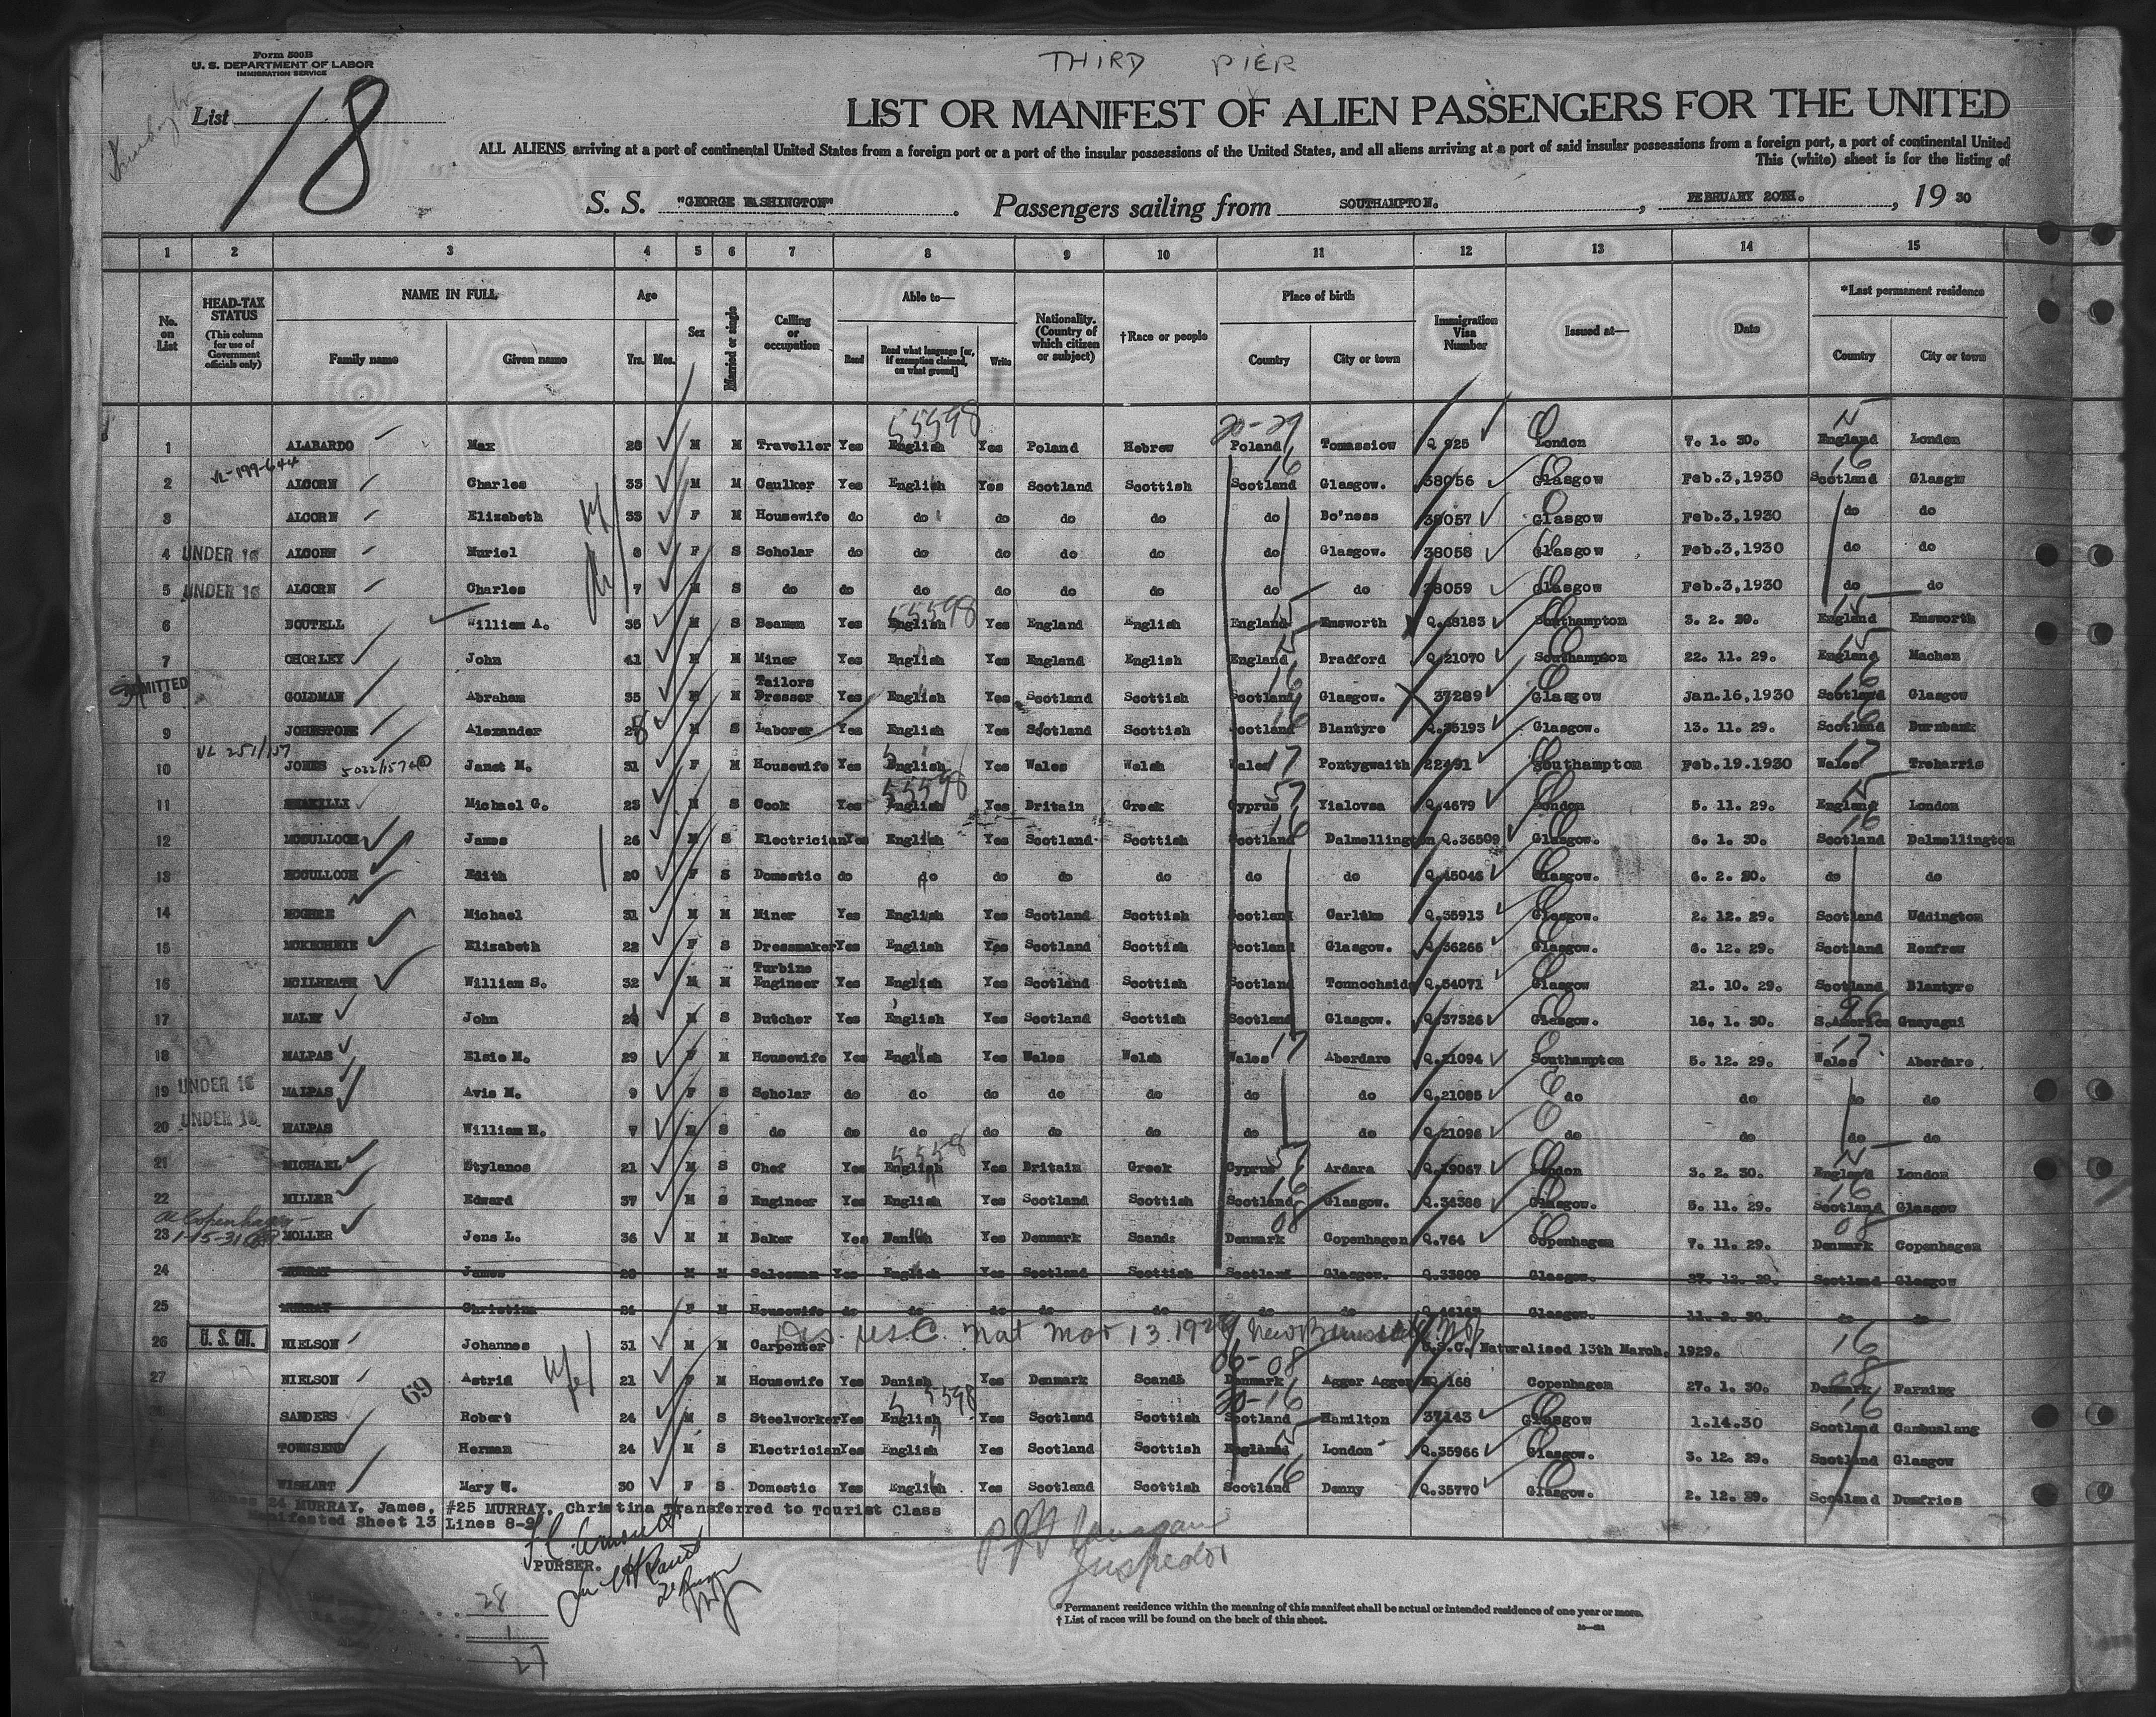 THIRD PIER
Form 500B
U. S. DEPARTMENT OF LABOR
IMMIGRATION SERVICE
List 18
LIST OR MANIFEST OF ALIEN PASSENGERS FOR THE UNITED
ALL ALIENS arriving at a port of continental United States from a foreign port or a port of the insular possessions of the United States, and all aliens arriving at a port of said insular possessions from a foreign port, a port of continental United
This (white) sheet is for the listing of
S. S. "GEORGE WASHINGTON" . Passengers sailing from SOUTHAMPTON. , FEBRUARY 20TH. , 19 30
1 2 3 4 5 6 7 8 9 10 11 12 13 14 15
No. on List
HEAD-TAX STATUS (This column for use of Government officials only)
NAME IN FULL
Family name Given name
Age
Yrs. Mos.
Sex
Married or single
Calling or occupation
Able to—
Read Read what language [or, if exemption claimed, on what ground] Write
Nationality. (Country of which citizen or subject)
†Race or people
Place of birth
Country City or town
Immigration Visa Number
Issued at—
Date
*Last permanent residence
Country City or town
55598 20-29 15
1 ALABARDO Max 28 M M Traveller Yes English Yes Poland Hebrew Poland Tomassiow Q 925 London 7. 1. 30. England London
16 16
2 ALCORN Charles 33 M M Caulker Yes English Yes Scotland Scottish Scotland Glasgow. 38056 Glasgow Feb.3,1930 Scotland Glasgow
3 ALCORN Elizabeth 33 F M Housewife do do do do do do Bo'ness 38057 Glasgow Feb.3,1930 do do
4 UNDER 16 ALCORN Muriel 8 F S Scholar do do do do do do Glasgow. 38058 Glasgow Feb.3,1930 do do
5 UNDER 16 ALCORN Charles 7 M S do do do do do do do do 38059 Glasgow Feb.3,1930 do do
55598 15 15
6 BOUTELL William A. 35 M S Seaman Yes English Yes England English England Emsworth Q.48183 Southampton 3. 2. 30. England Emsworth
15 15
7 CHORLEY John 41 M M Miner Yes English Yes England English England Bradford Q.21070 Southampton 22. 11. 29. England Machen
ADMITTED
8 GOLDMAN Abraham 35 M M Tailors Presser Yes English Yes Scotland Scottish Scotland Glasgow. 37289 Glasgow Jan.16,1930 Scotland Glasgow
9 JOHNSTONE Alexander 28 M S Laborer Yes English Yes Scotland Scottish Scotland Blantyre Q.35193 Glasgow. 13. 11. 29. Scotland Burnbank
10 JONES Janet M. 31 F M Housewife Yes English Yes Wales Welsh Wales 17 Pontygwaith 22491 Southampton Feb.19.1930 Wales 17 Treharris
55598 57 15
11 Michael G. 23 M S Cook Yes English Yes Britain Greek Cyprus Yialovsa Q.4679 London 5. 11. 29. England London
16 16
12 MCCULLOCH James 26 M S Electrician Yes English Yes Scotland Scottish Scotland Dalmellington Q.36509 Glasgow. 6. 1. 30. Scotland Dalmellington
13 MCCULLOCH Edith 20 F S Domestic do do do do do do do Q.45046 Glasgow. 6. 2. 30. do do
14 MCGHEE Michael 31 M M Miner Yes English Yes Scotland Scottish Scotland Carluke Q.35913 Glasgow. 2. 12. 29. Scotland Uddington
15 MCKECHNIE Elizabeth 22 F S Dressmaker Yes English Yes Scotland Scottish Scotland Glasgow. Q.36266 Glasgow. 6. 12. 29. Scotland Renfrew
16 MCILREATH William S. 32 M M Turbine Engineer Yes English Yes Scotland Scottish Scotland Tonnochside Q.34071 Glasgow 21. 10. 29. Scotland Blantyre
96
17 MALEY John M S Butcher Yes English Yes Scotland Scottish Scotland Glasgow. Q.37326 Glasgow. 16. 1. 30. S.America Guayaqui
18 MALPAS Elsie M. 29 F M Housewife Yes English Yes Wales Welsh Wales 17 Aberdare Q.21094 Southampton 5. 12. 29. Wales 17 Aberdare
19 UNDER 16 MALPAS Avis M. 9 F S Scholar do do do do do do do Q.21095 do do do do
20 UNDER 16 MALPAS William H. 7 M S do do do do do do do do Q.21096 do do do do
5558 57 15
21 MICHAEL Stylanos 21 M S Chef Yes English Yes Britain Greek Cyprus Ardara Q.19067 London 3. 2. 30. England London
16 16
22 MILLER Edward 37 M S Engineer Yes English Yes Scotland Scottish Scotland Glasgow. Q.34388 Glasgow. 5. 11. 29. Scotland Glasgow
Copenhagen 08 08
23 1-15-31 MOLLER Jens L. 36 M M Baker Yes Danish Yes Denmark Scand: Denmark Copenhagen Q.764 Copenhagen 7. 11. 29. Denmark Copenhagen
24 MURRAY James 28 M M Salesman Yes English Yes Scotland Scottish Scotland Glasgow. Q.33809 Glasgow. 27. 12. 29. Scotland Glasgow
25 MURRAY Christina 21 F M Housewife do do do do do do do Glasgow. 11. 2. 30. do do
26 U. S. CIT. NIELSON Johannes 31 M M Carpenter U.S.C. Nat Mar 13. 1929 New Brunswick N.J. U.S.C. Naturalised 13th March. 1929. 16
06-08 08
27 NIELSON Astrid 21 F M Housewife Yes Danish Yes Denmark Scand: Denmark Agger Agger 168 Copenhagen 27. 1. 30. Denmark Farming
69 55598 20-16 16
SANDERS Robert 24 M S Steelworker Yes English Yes Scotland Scottish Scotland Hamilton 37143 Glasgow 1.14.30 Scotland Cambuslang
TOWNSEND Herman 24 M S Electrician Yes English Yes Scotland Scottish England London Q.35966 Glasgow. 3. 12. 29. Scotland Glasgow
WISHART Mary W. 30 F S Domestic Yes English Yes Scotland Scottish Scotland 16 Denny Q.35770 Glasgow. 2. 12. 29. Scotland Dumfries
Lines 24 MURRAY, James, #25 MURRAY, Christina Transferred to Tourist Class
Manifested Sheet 13 Lines 8-9
PURSER.
Inspector
28
1
27
*Permanent residence within the meaning of this manifest shall be actual or intended residence of one year or more.
†List of races will be found on the back of this sheet.